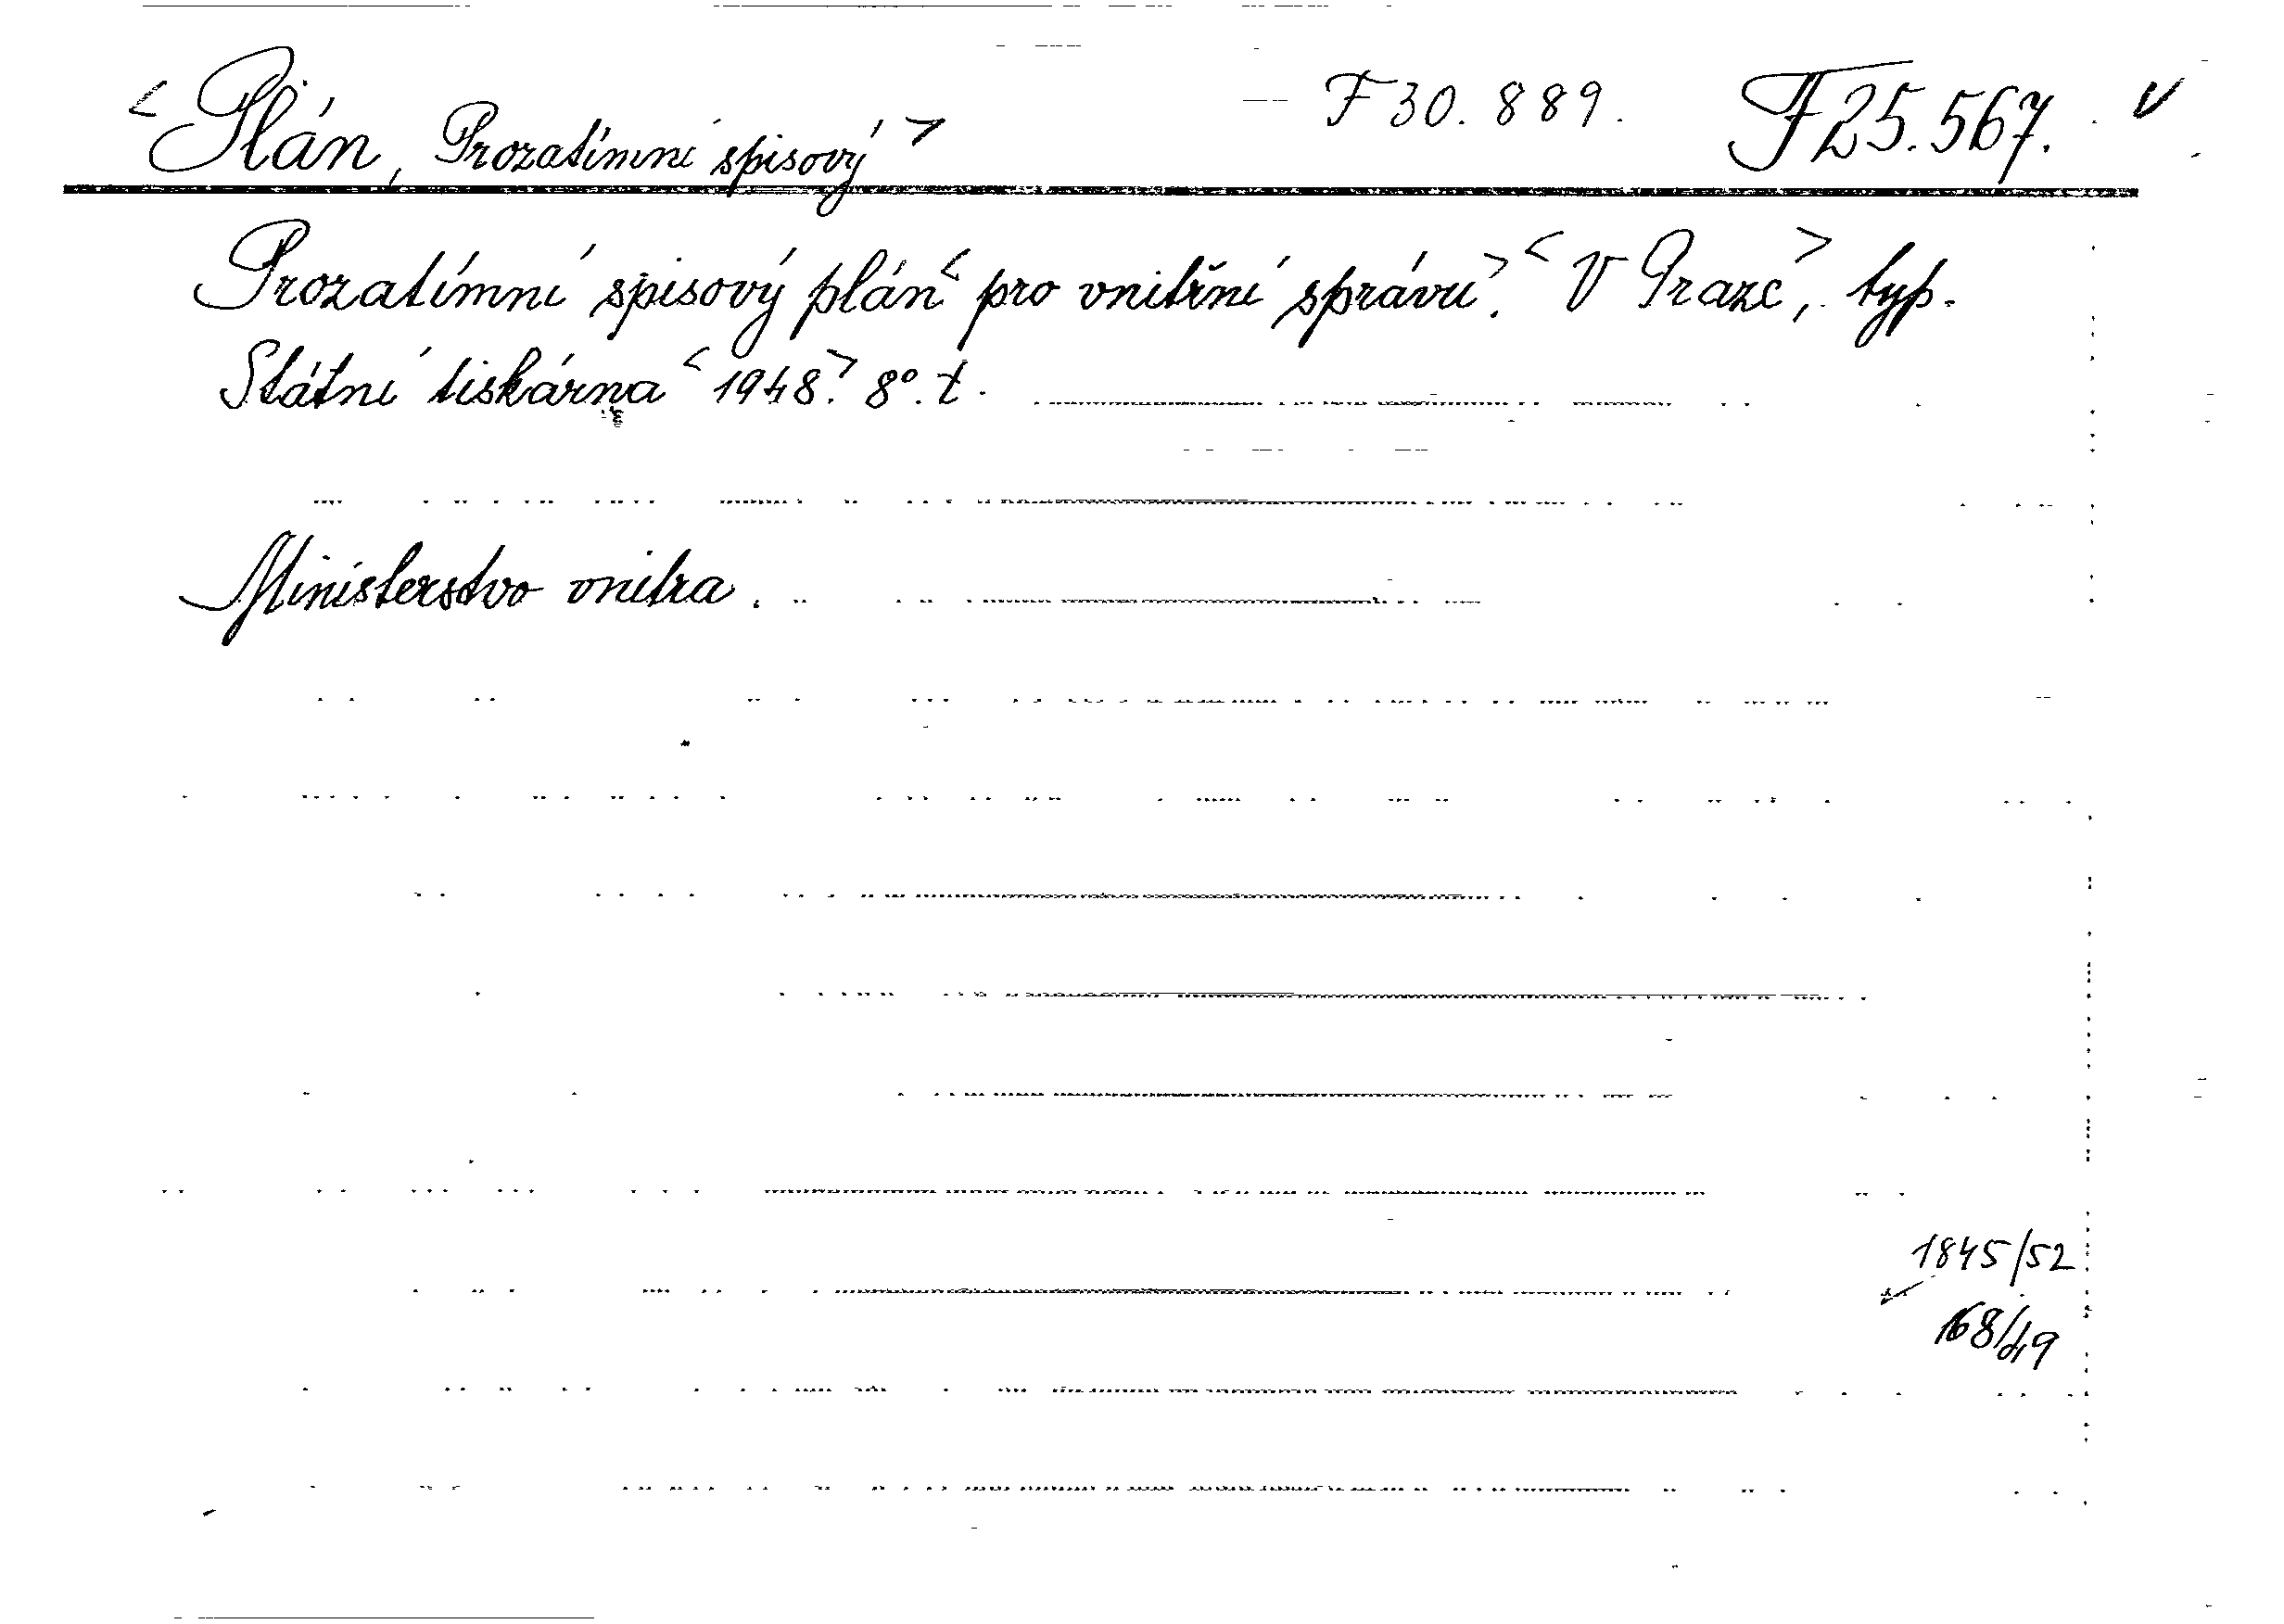 <Plán, Prozatímní spisový> F 30.889. F 25.567. V
Prozatímní spisový plán < pro vnitřní správu>. <V Praze>, typ.
Státní tiskárna <1948>. 8°. t.
Ministerstvo vnitra.
1845/52
168/49